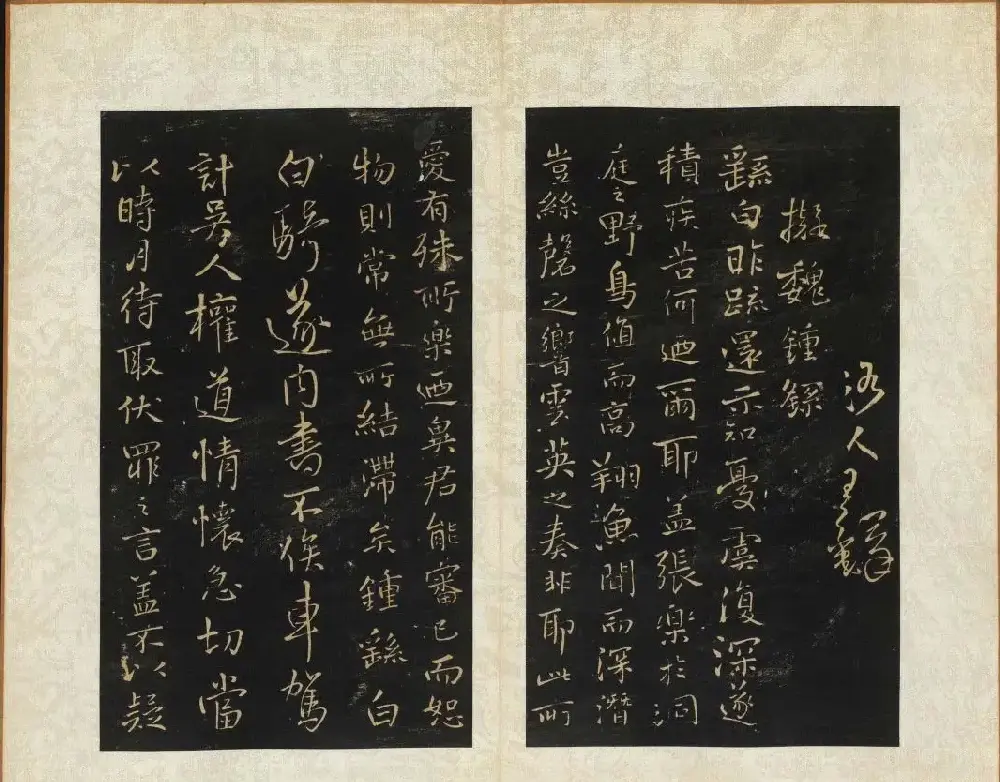 洛人王鐸
擬魏鍾繇
繇白昨疏還示知憂虞復深遂
積疾苦何迺爾耶蓋張樂於洞
庭之野鳥值而高翔漁聞而深潛
豈絲磬之響雲英之奏非耶此所
愛有殊所樂迺異君能審己而恕
物則常無所結滯矣鍾繇白
白騎遂内書不俟車駕
計吳人權道情懷急切當
以時月待取伏罪之言蓋不以疑